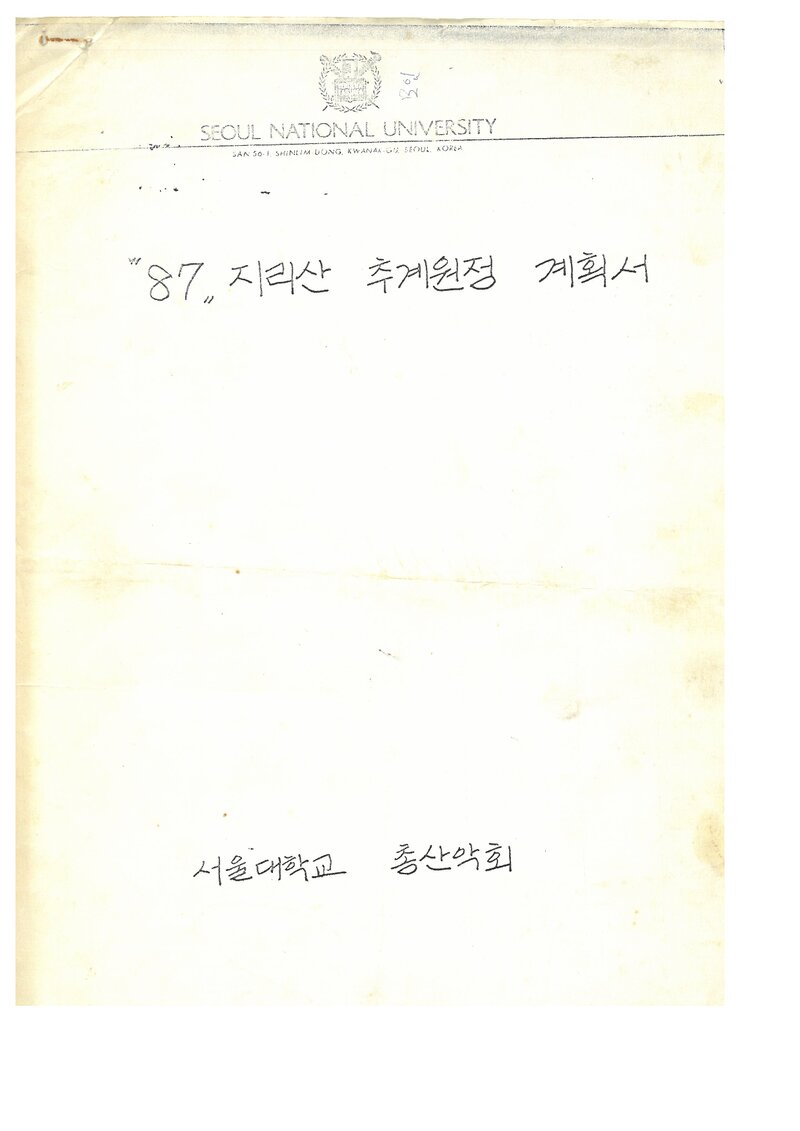 SEOUL NATIONAL UNIVERSITY
SAN 56-1, SHINLIM-DONG, KWANAK-GU, SEOUL, KOREA
"87" 지리산 추계원정 계획서
서울대학교 총산악회